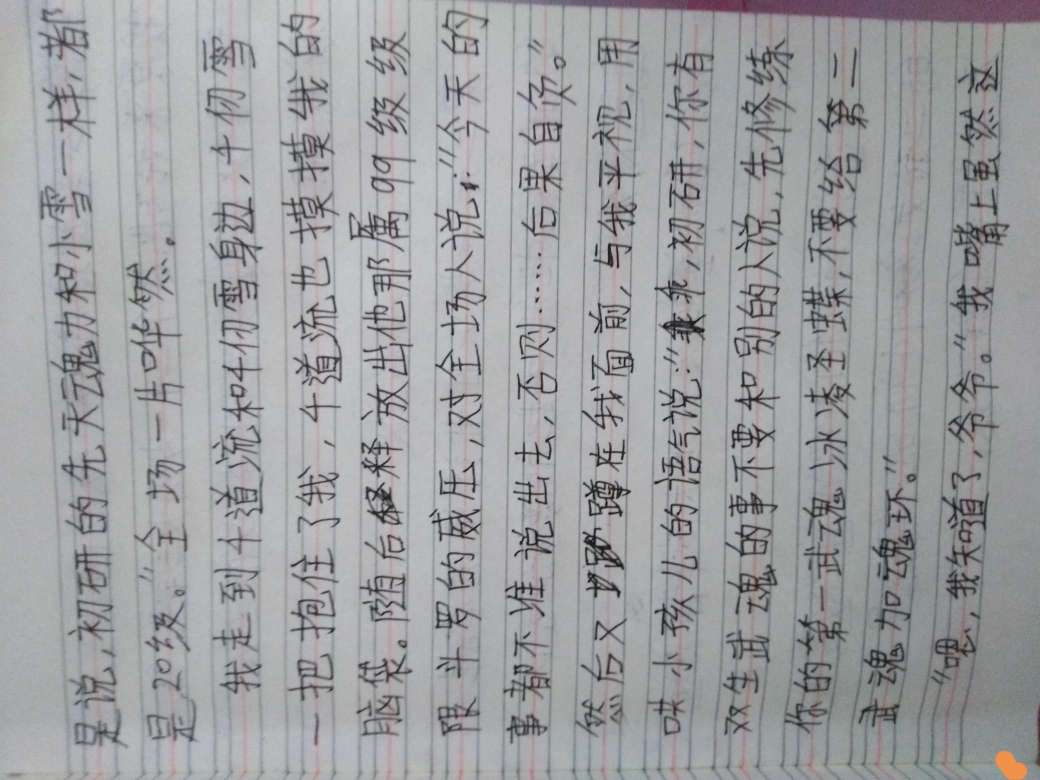 是说,初研的先天魂力和小雪一样,都
是20级。”全场一片哗然。
我走到千道流和千仞雪身边,千仞雪
一把抱住了我,千道流也摸摸我的
脑袋。随后释放出他那属99级级
限斗罗的威压,对全场人说:“今天的
事都不准说出去,否则……后果自负。”
然后又蹲在我面前,与我平视,用
哄小孩儿的语气说:“乖乖,初研,你有
双生武魂的事不要和别的人说,先修练
你的第一武魂冰凄圣蝶,不要给第二
武魂加魂环。”
“嗯,我知道了,爷爷。”我嘴上虽然这